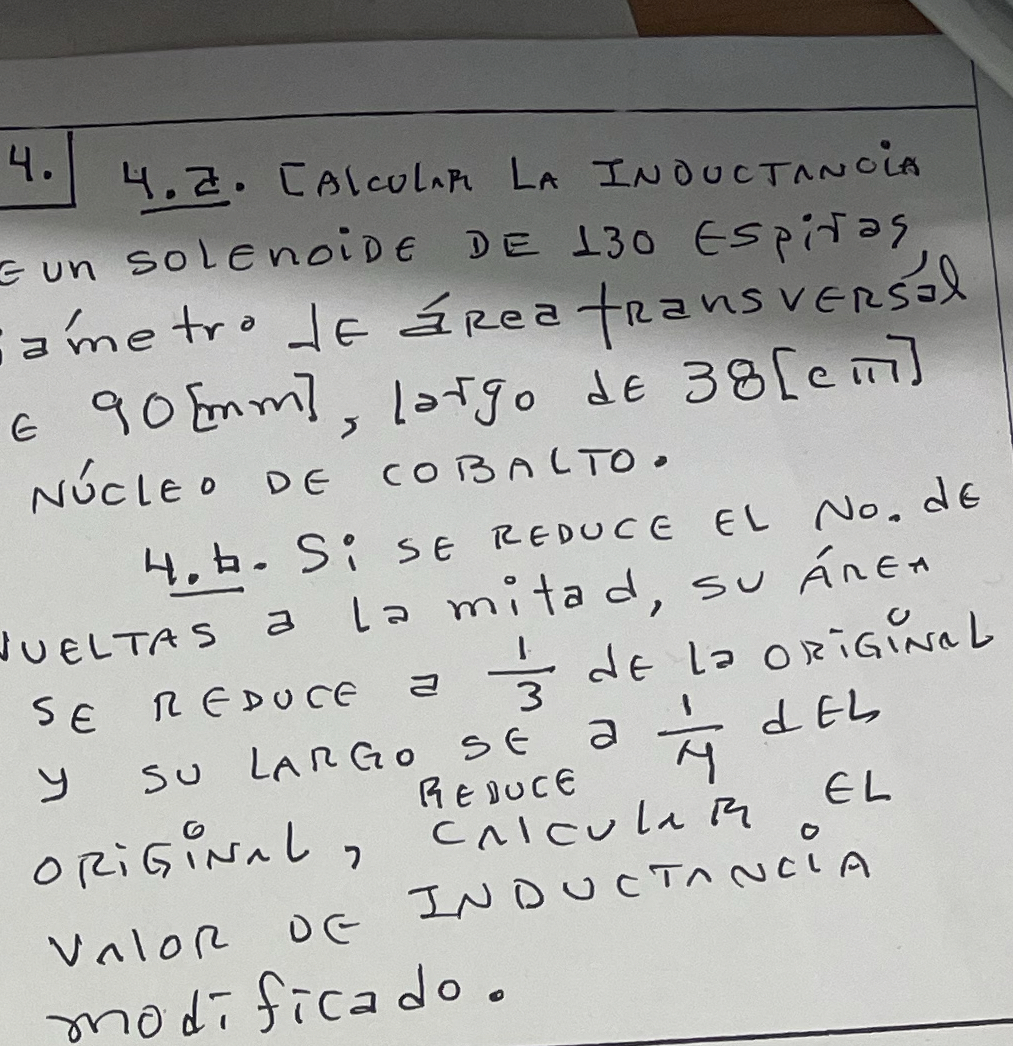 4. 4.a. CALCULAR LA INDUCTANCIA
E UN SOLENOIDE DE 130 Espiras,
iámetro de área transversal
E 90 [mm], largo de 38 [cm]
NÚCLEO DE COBALTO.
4.b. Si SE REDUCE EL No. de
VUELTAS a la mitad, su ÁREA
SE REDUCE a 1/3 de la ORIGINAL
y su LARGO SE REDUCE a 1/4 dEL
ORIGINAL, CALCULAR EL
VALOR DE INDUCTANCIA
modificado.